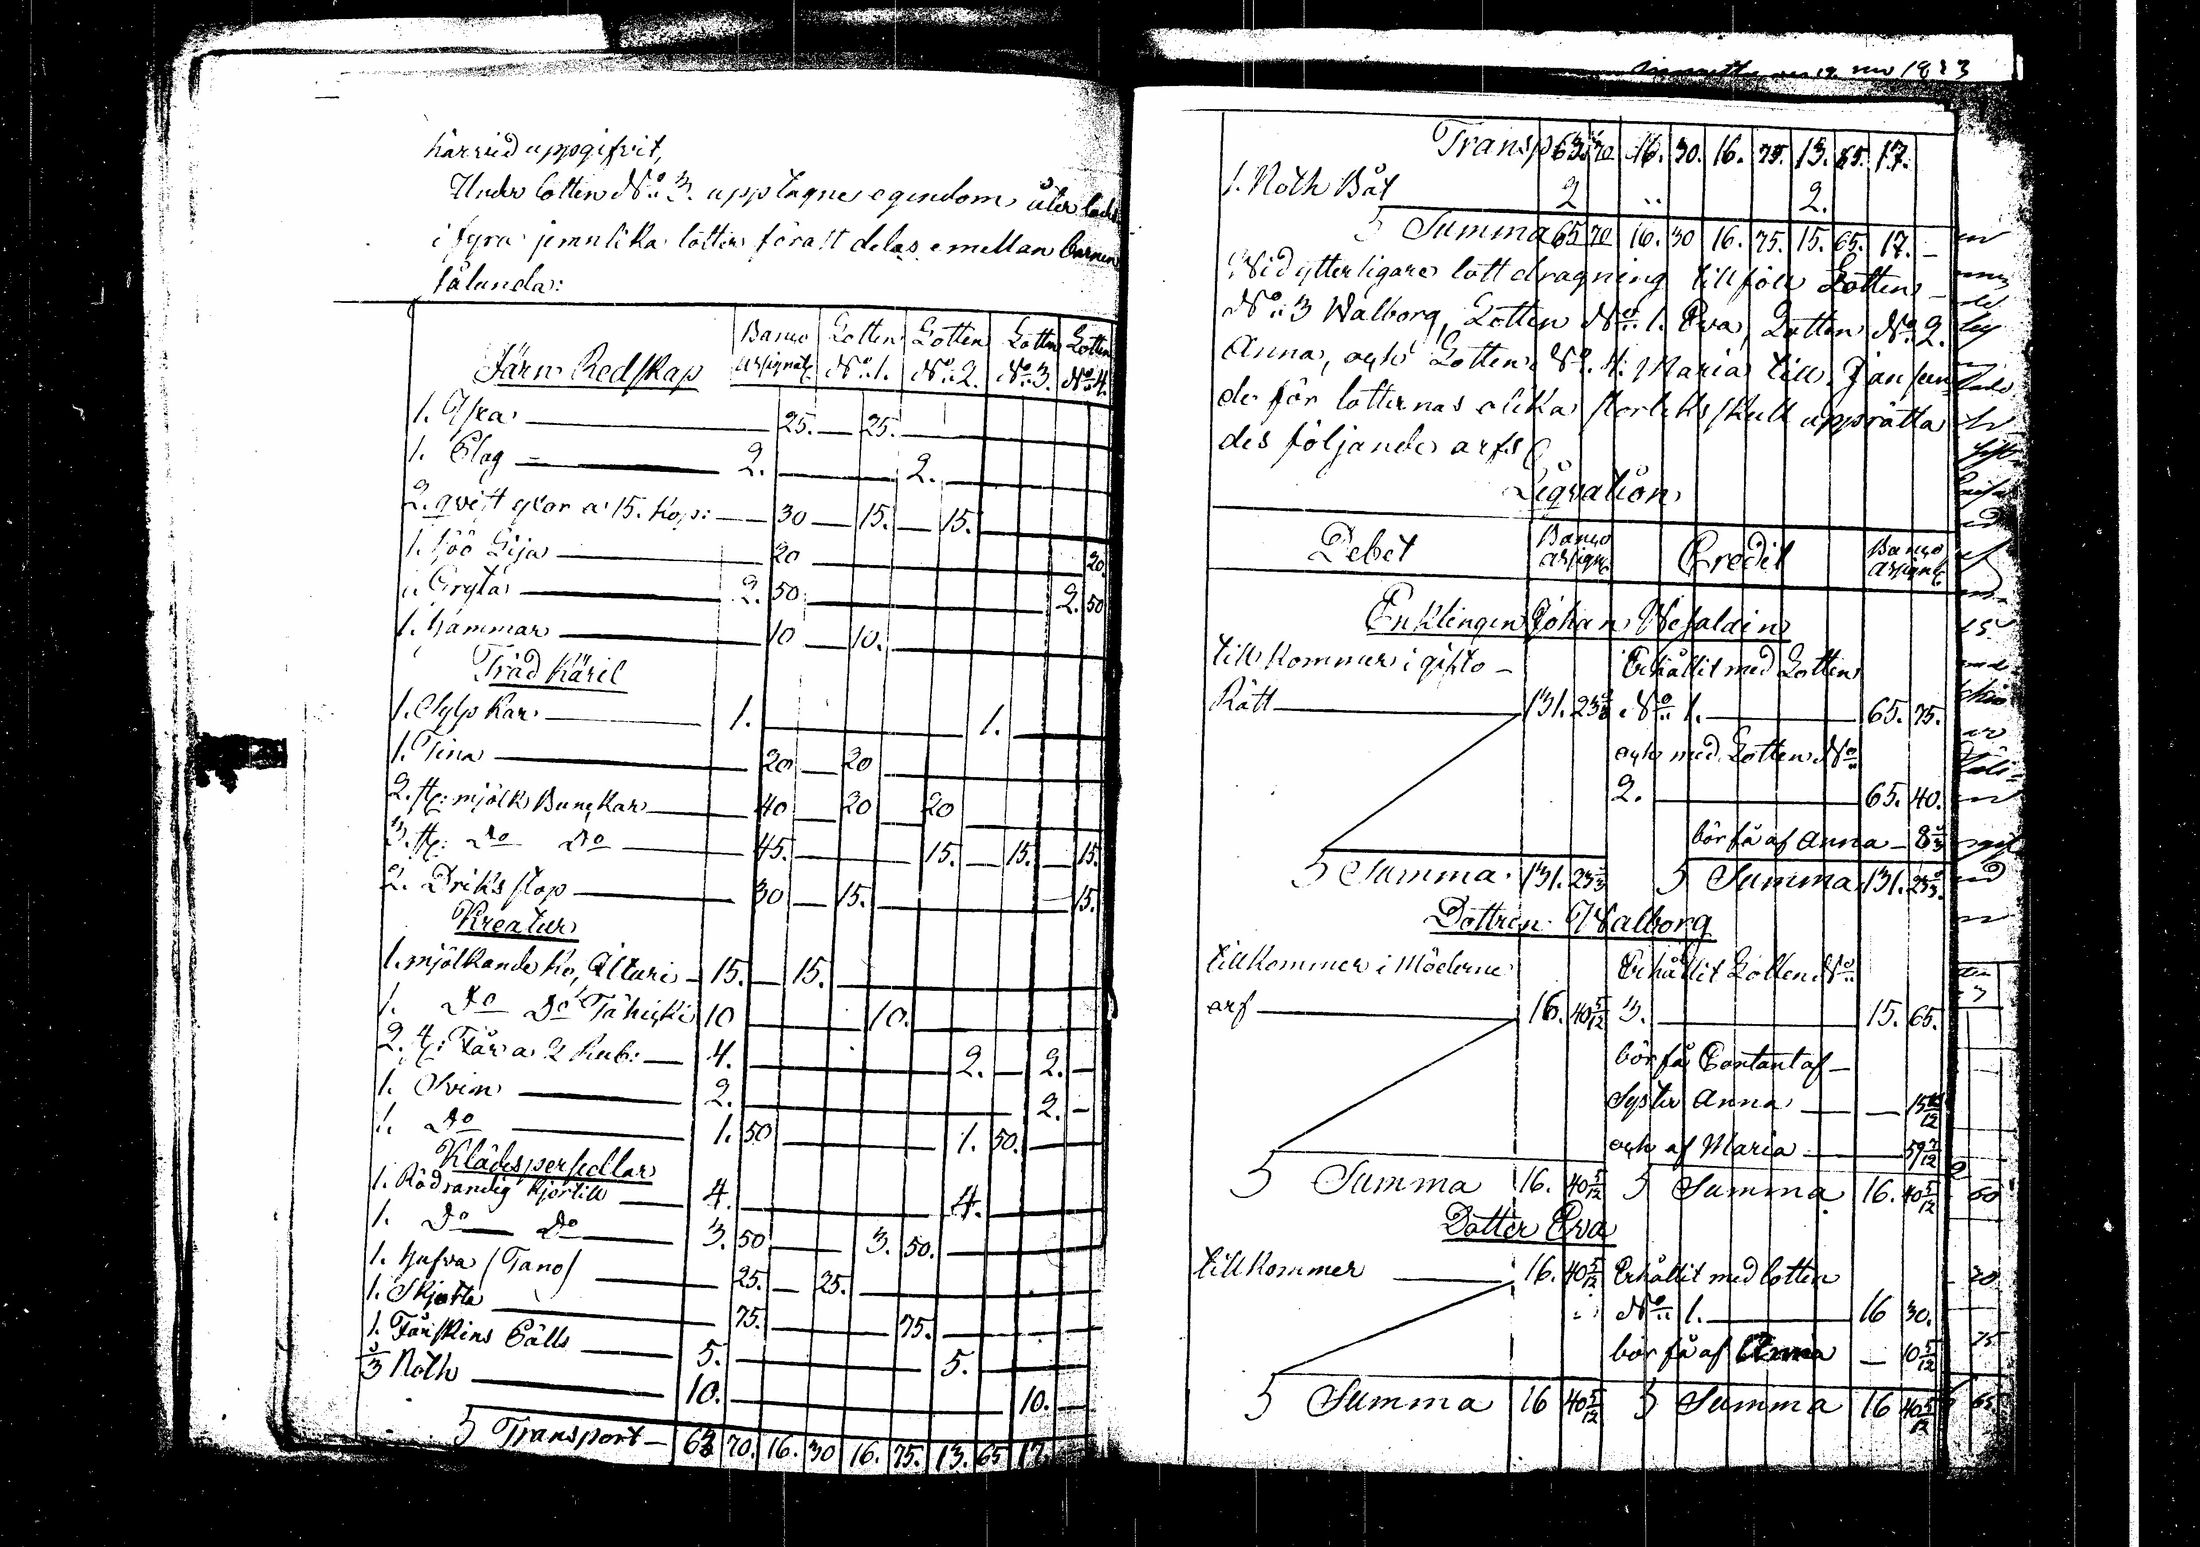 härvid uppgifvit,
Under Lotten No: 3. upptagne egendom, åter lades
i fyra jemnlika lotter för att delas emellan Barnen
sålunda:
Järn Redskap Banco Assignat: Lotten No: 1. Lotten No: 2. Lotten No: 3. Lotten No: 4.
1. Yxa 25. 25.
1. Plog 2. 2.
2. qvist yxor a 15. Kop: 30 15. 15.
1. höö Lija 20 20.
1. Gryta 2. 50 2. 50
1. hammar 10 10.
Träd Käril
1. Kar 1. 1.
1. Tina 20 20
2. st: mjölk Bunckar 40 20 20
3. st: Do Do 45. 15. 15. 15.
2. Driks stop 30 15. 15.
Kreatur
1. mjölkande Ko, 15. 15.
1. Do Do 10 10.
2. st: Får a 2 Rub: 4. 2. 2.
1. Svin 2. 2.
1. Do 1. 50 1. 50.
Klädespersedlar
1. Rödrandig Kjortill 4. 4.
1. Do Do 3. 50 3. 50.
1. hufva (Tano) 25. 25.
1. Skjorta 75. 75.
1. Fårskins Pälls 5. 5.
Noth 10. 10.
S Transport 63 70. 16. 30 16. 75. 13. 65 17.
1823
Transp 63 70 16. 30. 16. 75. 13. 65. 17.
1. Noth Båt 2 .. 2.
S Summa 65 70 16. 30 16. 75. 15. 65. 17. -
Wid ytterligare lottdragning tillföll Lotten
No: 3 Walborg, Lotten No: 1. Eva, Lotten No: 2.
Anna, och Lotten No: 4: Maria till. Jän
de för lotternas olika storleks skull upprätta
des följande arfs
Liqvation
Debet Banco Assign: Credit Banco Assignat:
Enklingen Johan
tillkommer i gifto-
Rätt 131. 23 1/3
Erhållit med Lotten
No: 1. 65. 75.
och med Lotten No:
2. 65. 40.
bör få af Anna 8 1/3
S Summa 131. 23 1/3 S Summa 131. 23 1/3.
Dottren Walborg
tillkommer i Möderne
arf 16. 40 5/12
Erhållit Lotten No:
3. 15. 65.
bör få Contant af
Syster Anna
och af Maria 59 7/12
S Summa 16. 40 5/12 S Summa 16. 40 5/12
Dotter Eva
tillkommer 16. 40 5/12 Erhållit med lotten
No: 1. 16 30.
bör få af Anna 10 5/12
S Summa 16 40 5/12 S Summa 16 40 5/12